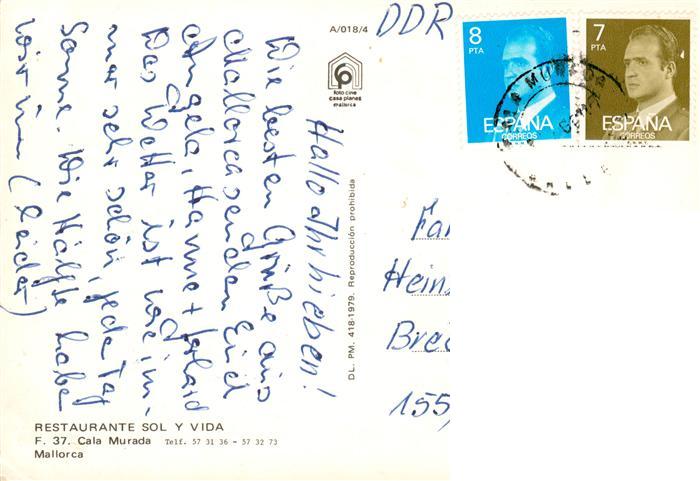 Hallo Ihr Lieben!
Die besten Grüße aus
Mallorca senden Euch
Angela, Hanne +
Das Wetter ist wie im-
mer sehr schön, jeden Tag
Sonne. Die Hälfte haben
wir um (leider)
RESTAURANTE SOL Y VIDA
F. 37. Cala Murada Telf. 57 31 36 - 57 32 73
Mallorca
A/018/4
foto cine
casa planas
mallorca
DL. PM. 418-1979. Reproducción prohibida
DDR
8
PTA
ESPAÑA
CORREOS
7
PTA
ESPAÑA
CORREOS
Fa
Hein
Bre
155